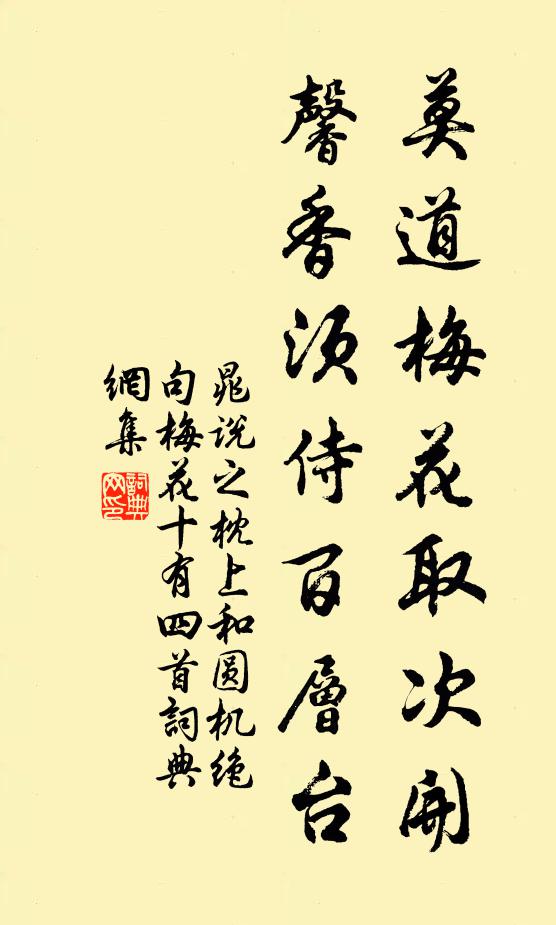 莫道梅花取次開
馨香須侍百層台
晁说之枕上和圆机绝
句梅花十有四首詞典
網集
詞典
网印